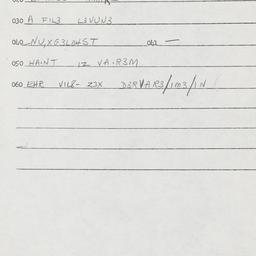 030 A FIL3 L3VUN3
040 NU,XG3LD4ST 041 —
050 HAINT IZ VA.R3M
060 EHR VIL8- Z3X D3RVAR3/1M3/1N